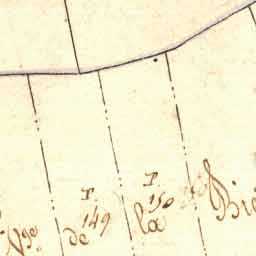 T. T.
149 150
de la Bie